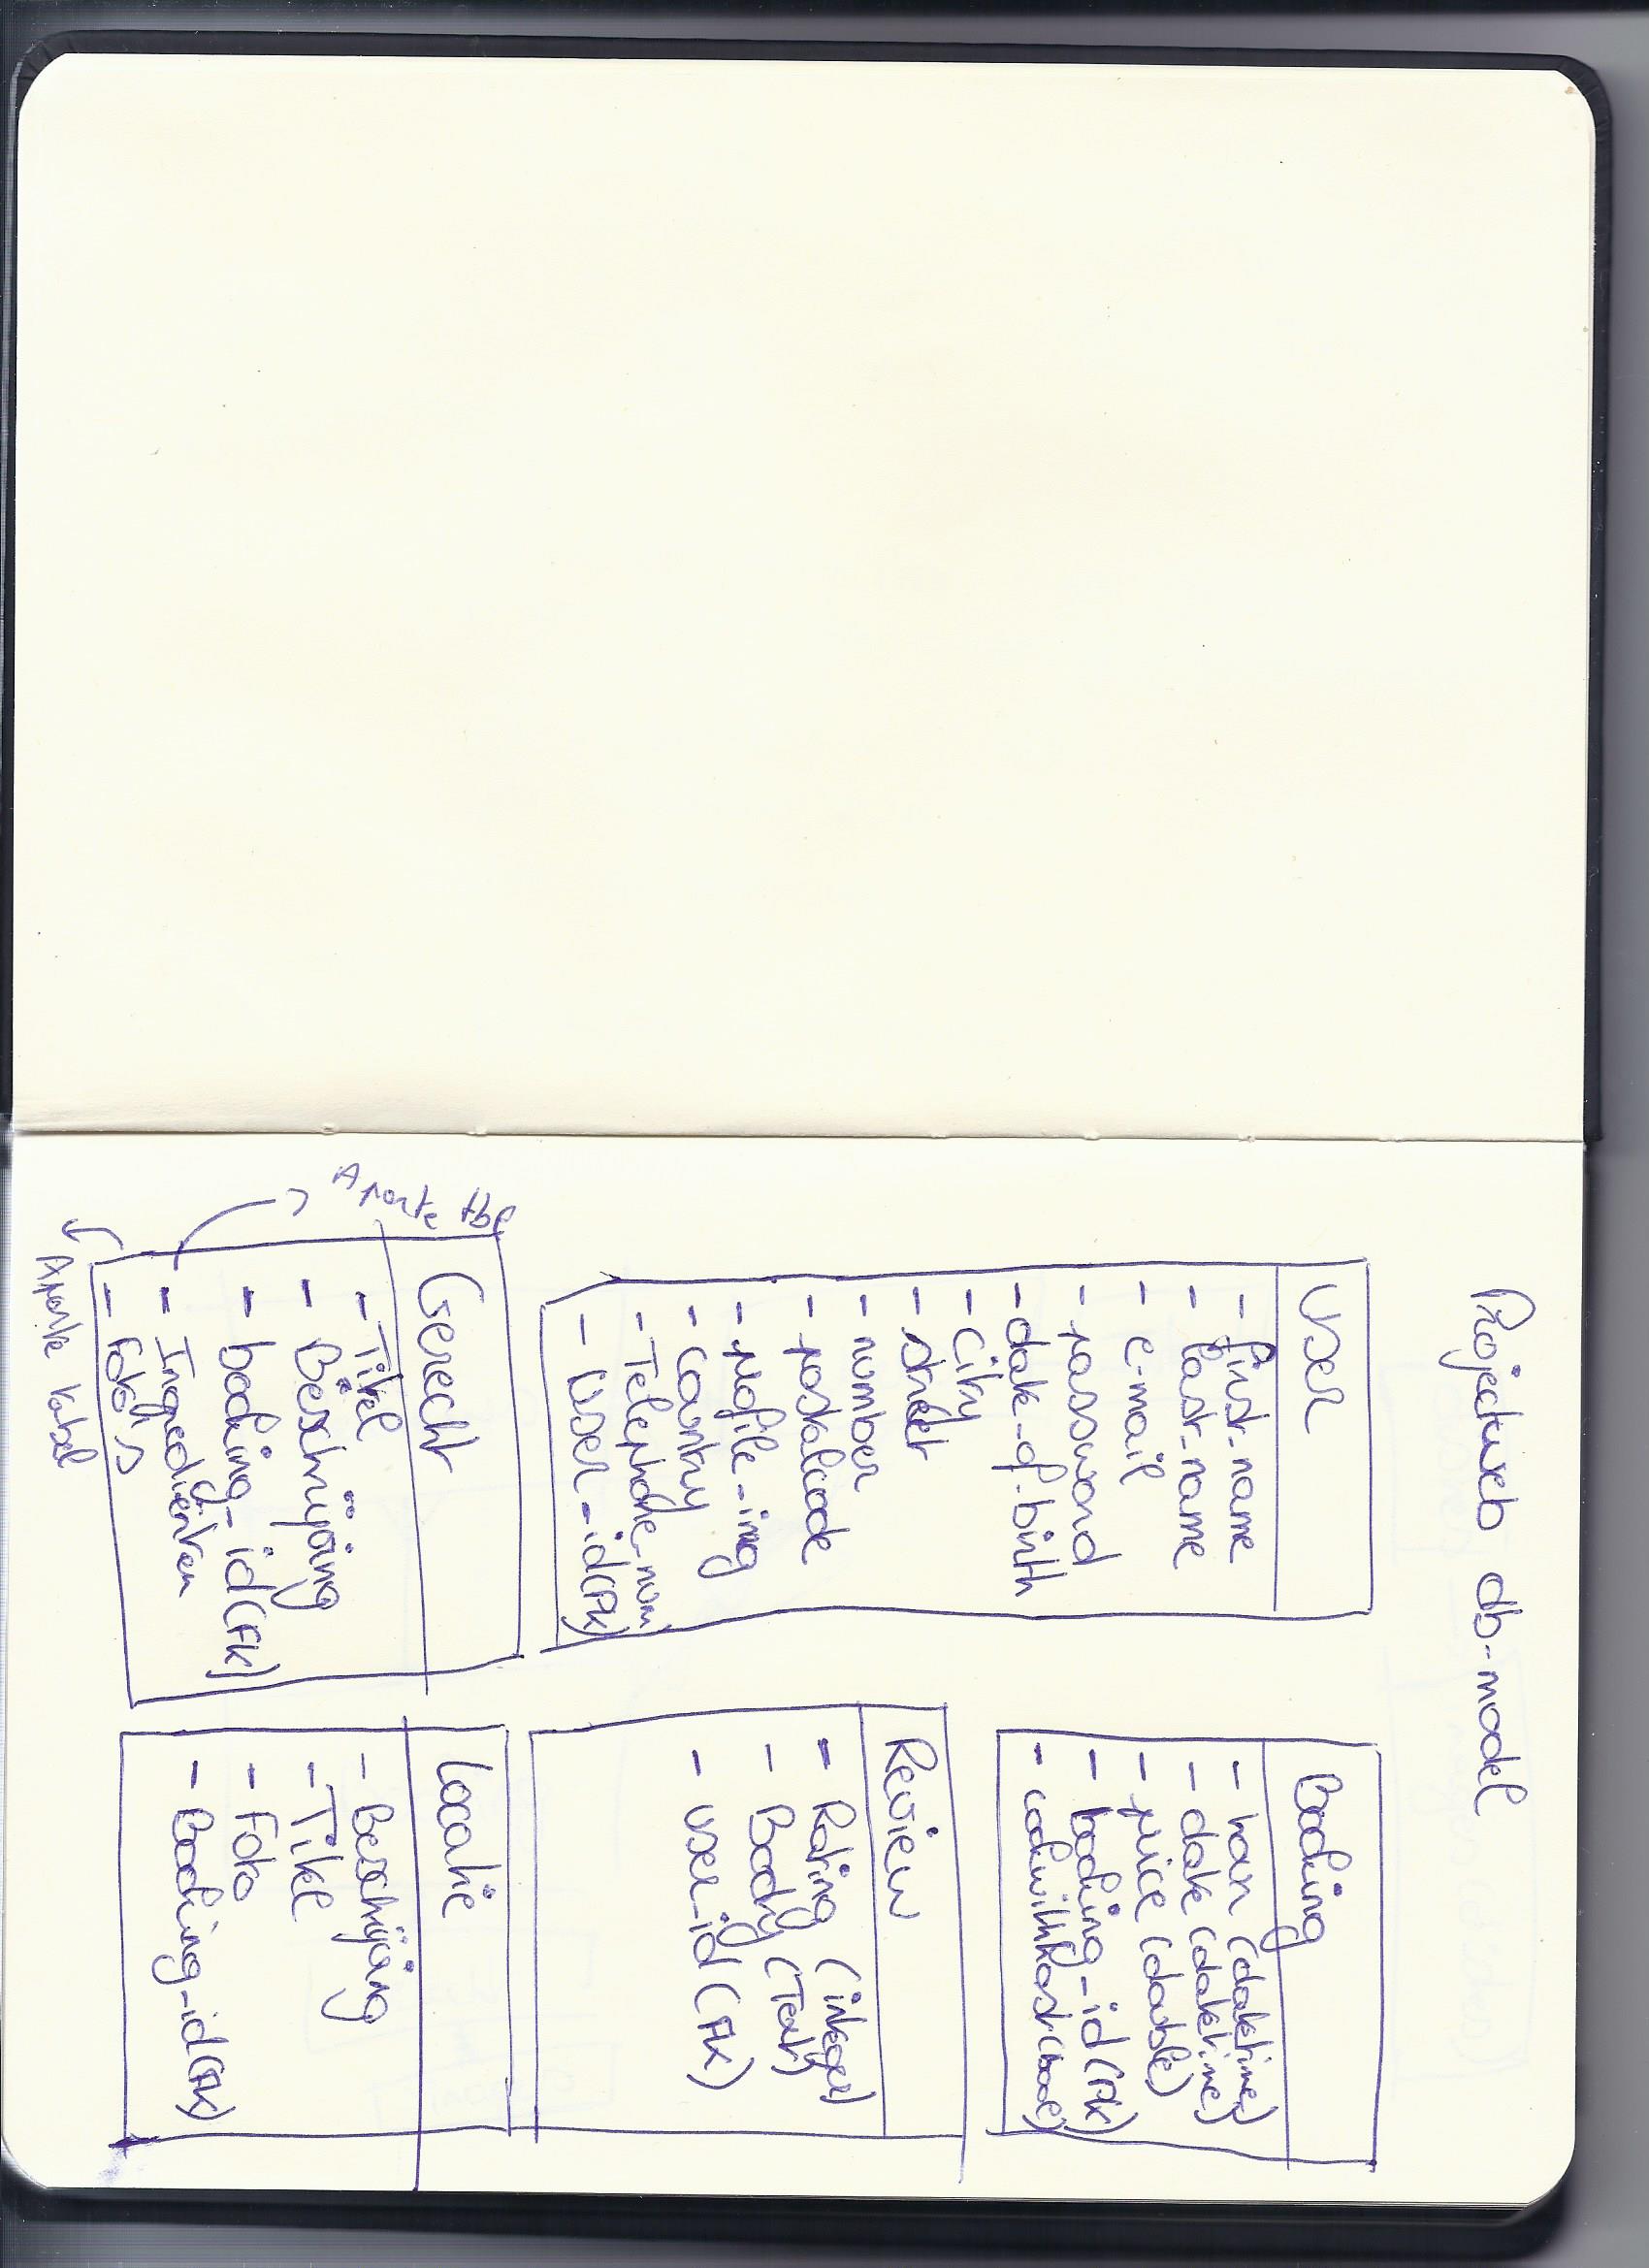 Projectweb db-model
User
- first_name
- last_name
- e-mail
- password
- date_of_birth
- city
- street
- number
- postalcode
- profile_img
- country
- Telephone_num
- User_id (PK)
Booking
- (datetime)
- date (datetime)
- price (double)
- booking_id (PK)
- cookwithhost (Bool)
Review
- Rating (integer)
- Body (Text)
- user_id (FK)
Aparte tbl
Gerecht
- Titel
- Beschrijving
- booking_id (FK)
- Ingrediënten
- Foto's
Aparte tabel
Locatie
- Beschrijving
- Titel
- Foto
- Booking_id (FK)